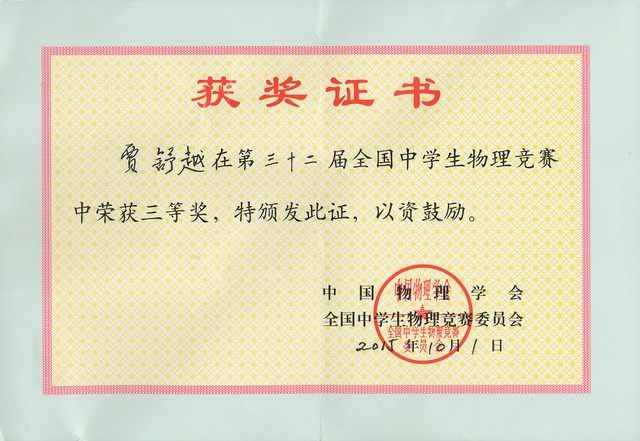 获奖证书
贾舒越在第三十二届全国中学生物理竞赛
中荣获三等奖，特颁发此证，以资鼓励。
中国物理学会
全国中学生物理竞赛委员会
2015年10月1日
中国物理学会
全国中学生物理竞赛
委员会